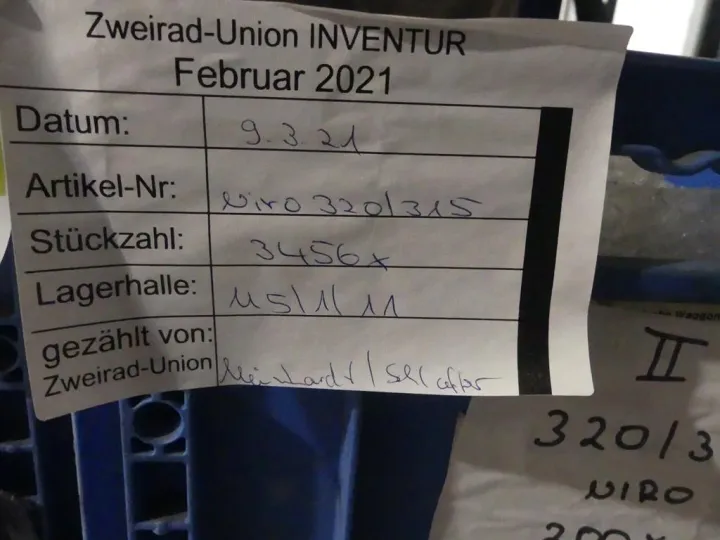 Zweirad-Union INVENTUR
Februar 2021
Datum: 9.3.21
Artikel-Nr: Niro 320/315
Stückzahl: 3456x
Lagerhalle: M5/1/11
gezählt von: Meinhardt/
Zweirad-Union
Waggon
II
320/3
NIRO